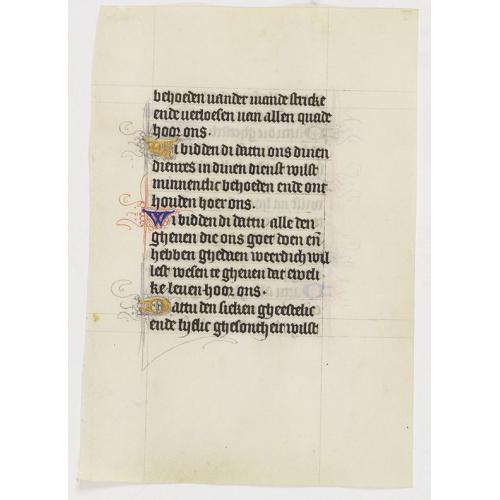 behoeden uander uiande stricke
ende uerloesen uan allen quade
hoor ons.
Wi bidden di dattu ons dinen
dienres in dinen dienst wilst
minnentlic behoeden ende ont
houden hoer ons.
Wi bidden di dattu alle den
gheuen die ons goet doen eñ
hebben ghedaen weerdich wil
lest wesen te gheuen dat eweli
ke leuen hoor ons.
Dattu den sieken gheestelic
ende lyflic ghesontheit wilst